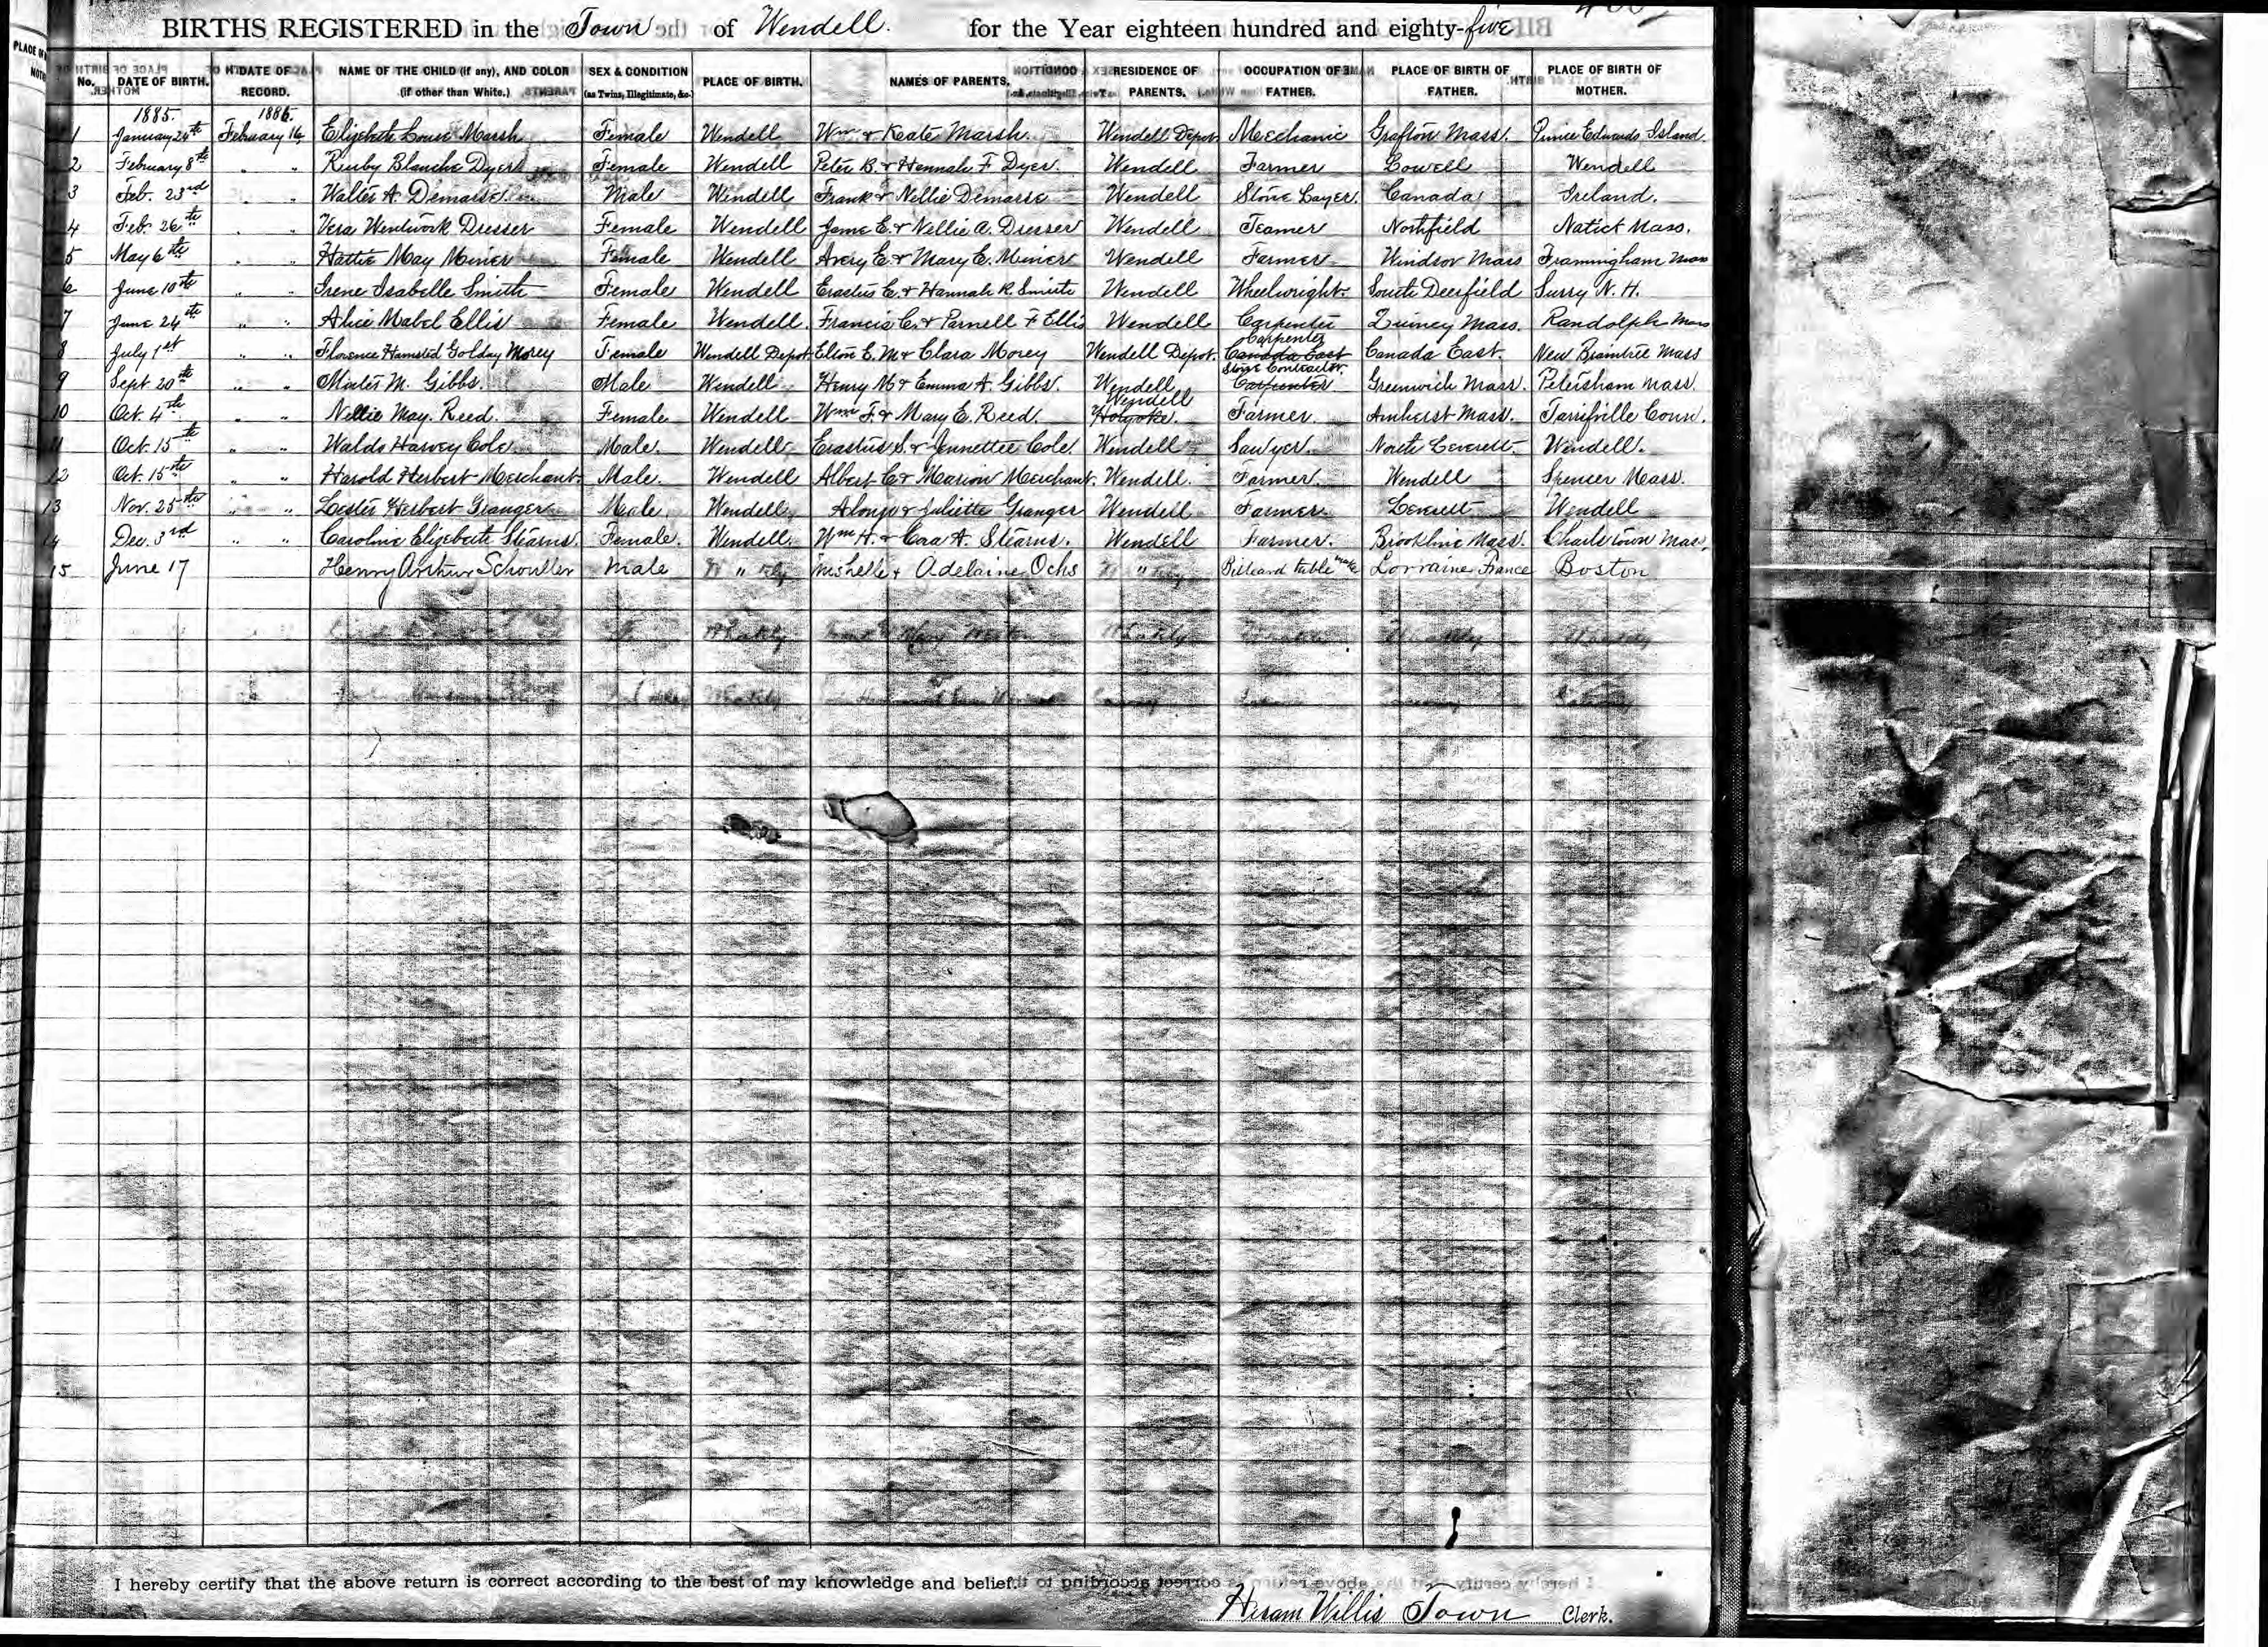 BIRTHS REGISTERED in the Town of Wendell. for the Year eighteen hundred and eighty-five
No. DATE OF BIRTH. DATE OF RECORD. NAME OF THE CHILD (if any), AND COLOR (if other than White.) SEX & CONDITION (as Twins, Illegitimate, &c.) PLACE OF BIRTH. NAMES OF PARENTS. RESIDENCE OF PARENTS. OCCUPATION OF FATHER. PLACE OF BIRTH OF FATHER. PLACE OF BIRTH OF MOTHER.
1885. 1886.
1 January 24th February 16, Elizabeth Louise Marsh Female Wendell Wm & Kate Marsh. Wendell Depot Mechanic Grafton Mass. Prince Edwards Island.
2 February 8th " " Blanche Dyer Female Wendell Peter B. & Hannah F Dyer. Wendell Farmer Lowell Wendell
3 Feb. 23rd " " Walter A. Demarse. Male Wendell Frank & Nellie Demarse Wendell Stone Layer. Canada Ireland.
4 Feb. 26th " " Vera Wentwork Dresser Female Wendell E. & Nellie A. Dresser Wendell Teamer Northfield Natick Mass.
5 May 6th " " Hattie May Miner Female Wendell Avery E. & Mary E. Miner Wendell Farmer Windsor Mass Framingham Mass
6 June 10th " " Irene Isabelle Smith Female Wendell Erastus E. & Hannah R. Smith Wendell Wheelwright. South Deerfield Surry N. H.
7 June 24th " " Alice Mabel Ellis Female Wendell. Francis C. & Parnell F Ellis Wendell Carpenter Quincy Mass. Randolph Mass
8 July 1st " " Florence Golday Morey Female Wendell Depot E. M & Clara Morey Wendell Depot. Carpenter Canada East Canada East. New Braintree Mass
9 Sept 20th " " M. Gibbs. Male Wendell Henry M & Emma A. Gibbs. Wendell Stone Contractor. Carpenter Greenwich Mass. Petersham Mass.
10 Oct. 4th " " Nellie May. Reed. Female Wendell Wm F. & Mary E. Reed. Wendell Holyoke. Farmer. Amherst Mass. Tarrifville Conn.
11 Oct. 15th " " Waldo Harvey Cole Male. Wendell Erastus S. & Jennettee Cole. Wendell Sawyer. North Leverett. Wendell.
12 Oct. 15th " " Harold Herbert Merchant. Male. Wendell Albert C & Marion Merchant. Wendell. Farmer. Wendell Spencer Mass.
13 Nov. 25th " " Lester Herbert Granger Male Wendell Alonzo & Juliette Granger Wendell Farmer Leverett Wendell
14 Dec. 3rd " " Caroline Elizebeth Stearns. Female. Wendell. Wm H. & Cora A. Stearns. Wendell Farmer. Brookline Mass. Charlstown Mass.
15 June 17 Henry Arthur Schouller Male " & Adelaine Ochs " Billiard table maker Lorraine France Boston
I hereby certify that the above return is correct according to the best of my knowledge and belief.
Hiram Willis Town Clerk.